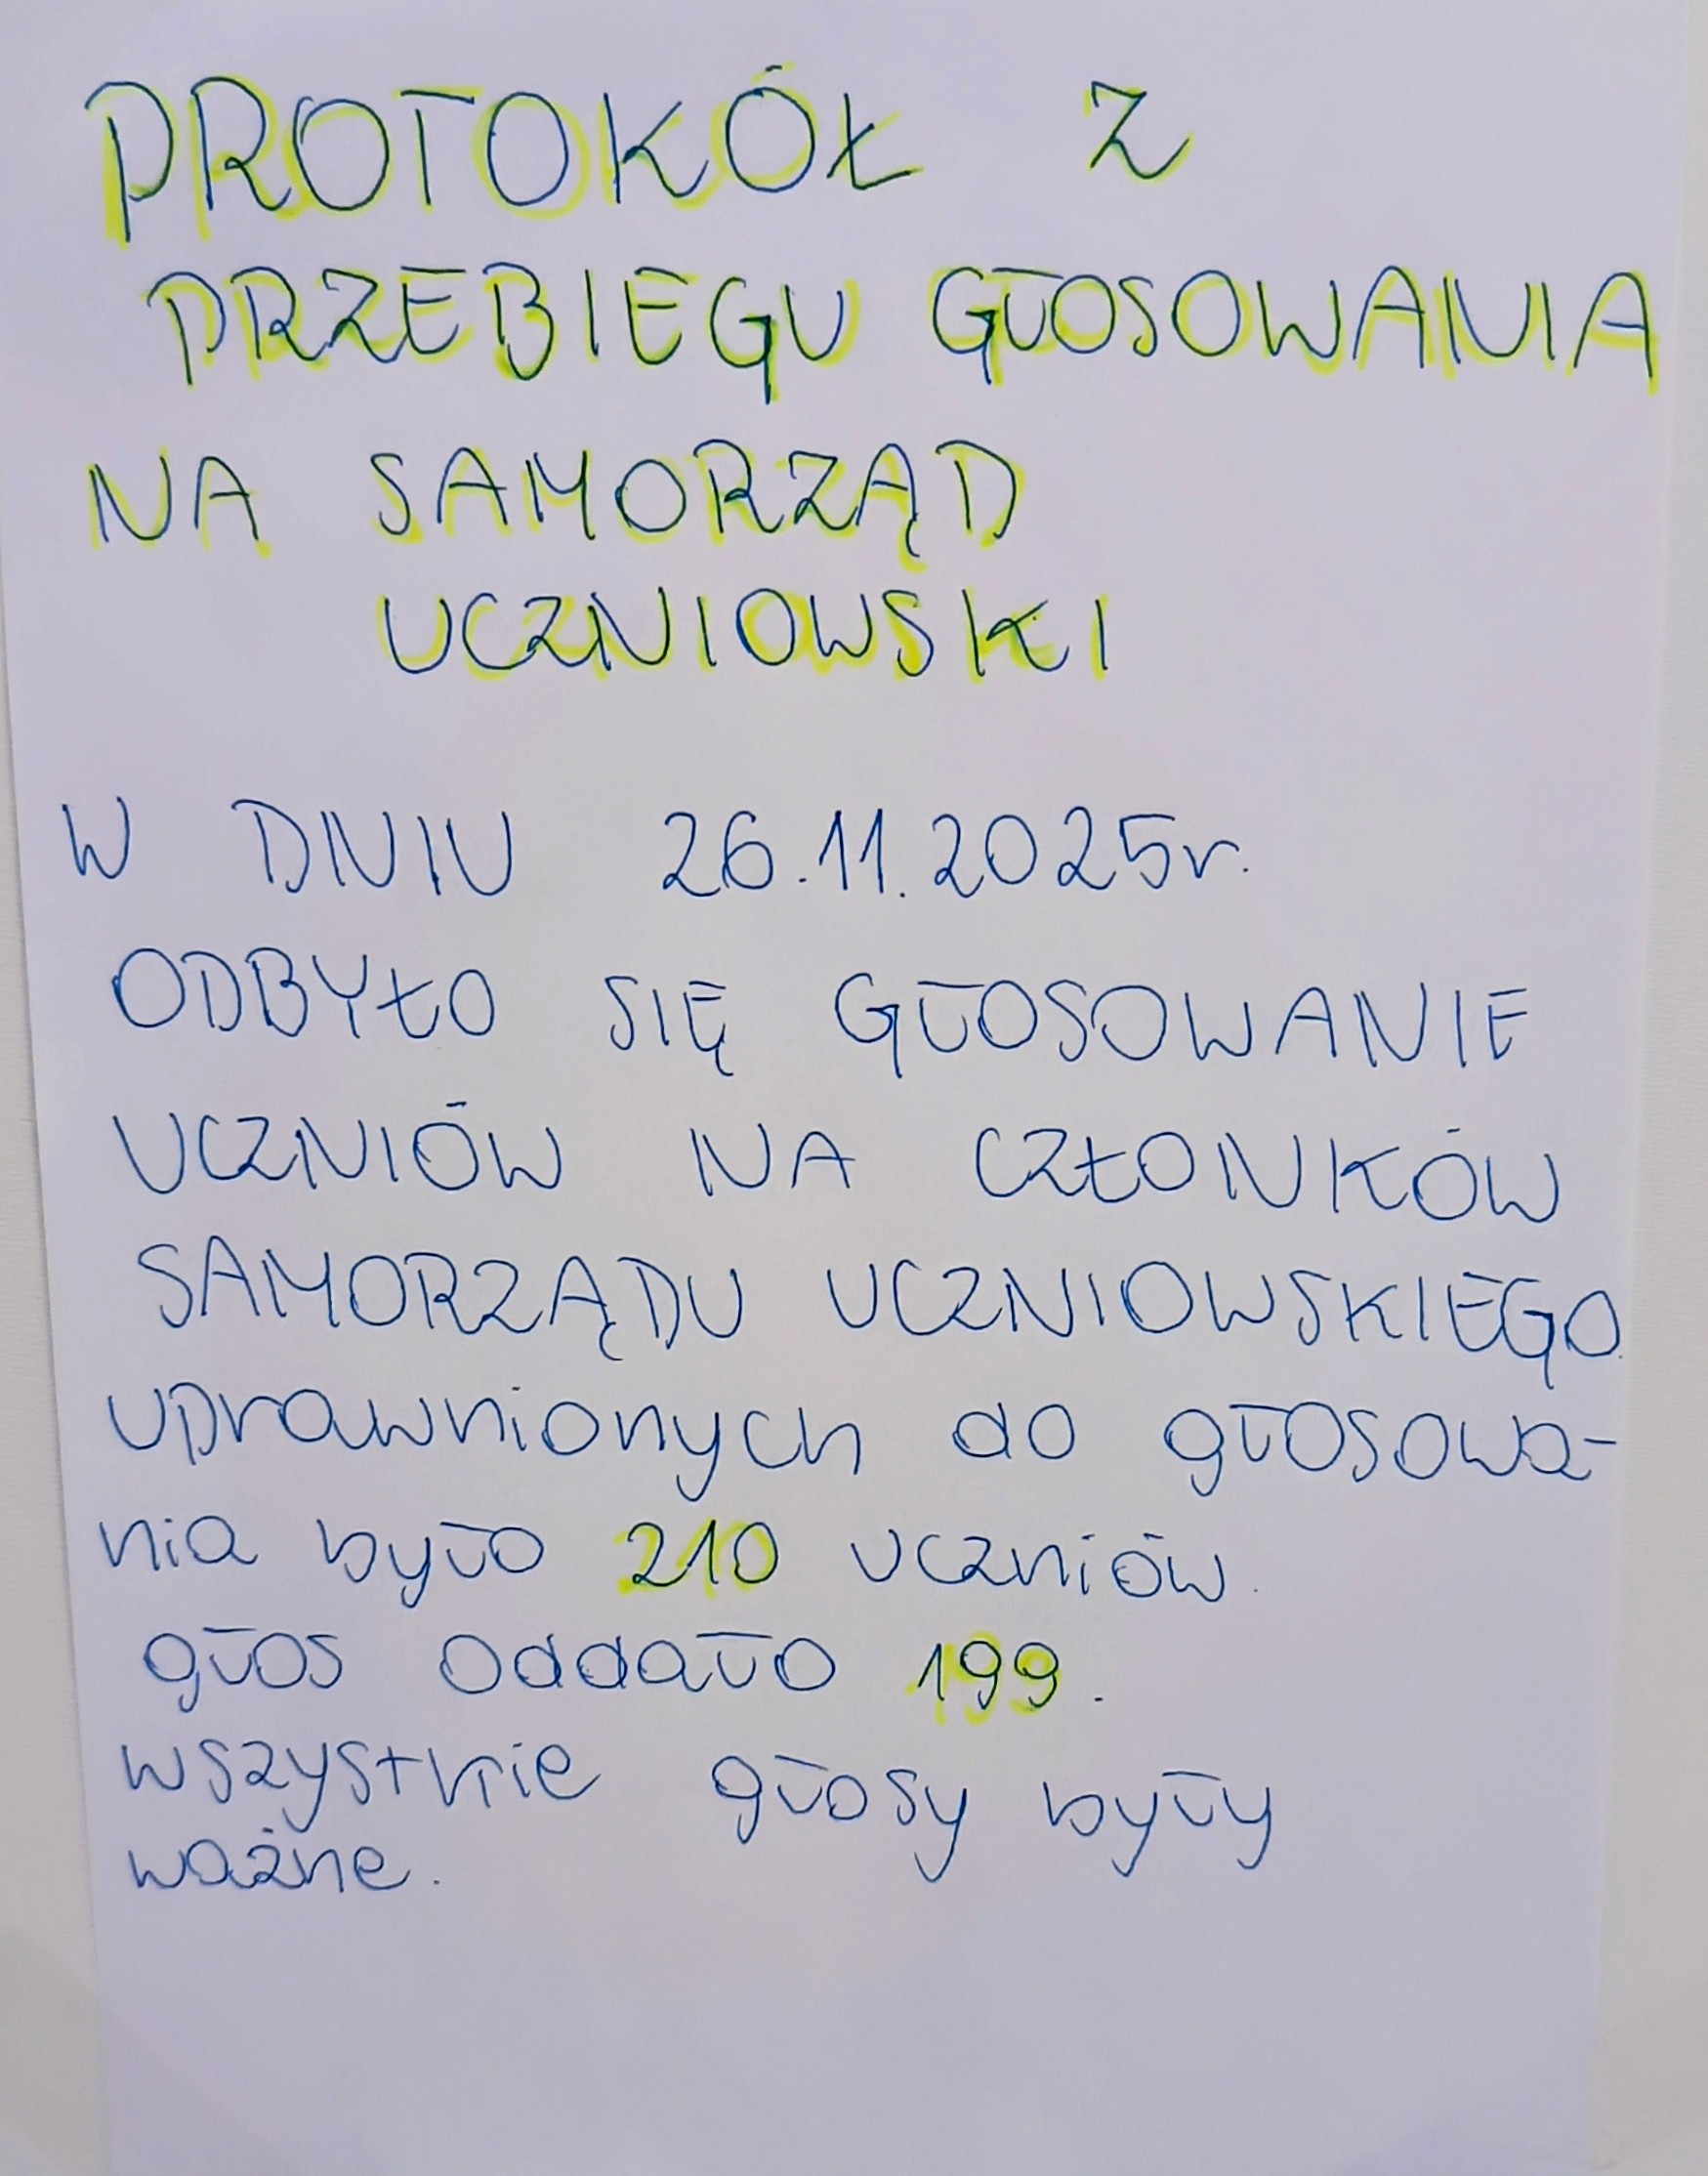 PROTOKÓŁ Z
PRZEBIEGU GŁOSOWANIA
NA SAMORZĄD
UCZNIOWSKI
W DNIU 26.11.2025r.
ODBYŁO SIĘ GŁOSOWANIE
UCZNIÓW NA CZŁONKÓW
SAMORZĄDU UCZNIOWSKIEGO.
uprawnionych do głosowa-
nia było 210 uczniów.
głos oddało 199.
wszystkie głosy były
ważne.